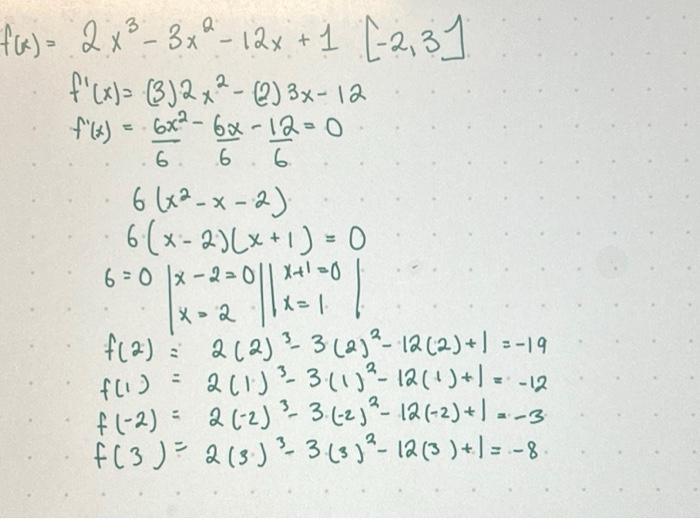 f(x) = 2x³ - 3x² - 12x + 1 [-2, 3]
f'(x) = (3)2x² - (2)3x - 12
f'(x) = 6x²/6 - 6x/6 - 12/6 = 0
6(x² - x - 2)
6(x - 2)(x + 1) = 0
6 = 0 | x - 2 = 0 || x + 1 = 0 |
x = 2 || x = 1 |
f(2) = 2(2)³ - 3(2)² - 12(2) + 1 = -19
f(1) = 2(1)³ - 3(1)² - 12(1) + 1 = -12
f(-2) = 2(-2)³ - 3(-2)² - 12(-2) + 1 = -3
f(3) = 2(3)³ - 3(3)² - 12(3) + 1 = -8